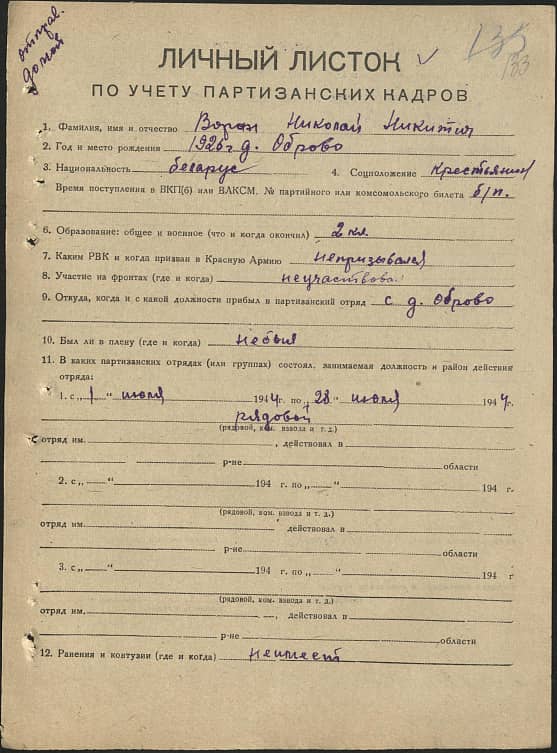 отправ. домой
135
133
ЛИЧНЫЙ ЛИСТОК
ПО УЧЕТУ ПАРТИЗАНСКИХ КАДРОВ
1. Фамилия, имя и отчество Николай Никитич
2. Год и место рождения 1926 г д. Оброво
3. Национальность беларус 4. Соцположение крестьянин
Время поступления в ВКП(б) или ВЛКСМ, № партийного или комсомольского билета б/п.
6. Образование: общее и военное (что и когда окончил) 2 кл.
7. Каким РВК и когда призван в Красную Армию непризывался
8. Участие на фронтах (где и когда) неучаствова.
9. Откуда, когда и с какой должности прибыл в партизанский отряд с д. Оброво
10. Был ли в плену (где и когда) небыл
11. В каких партизанских отрядах (или группах) состоял, занимаемая должность и район действия
отряда:
1. с „1“ июля 1944 г. по „28“ июля 1944 г.
рядовой
(рядовой, ком. взвода и т. д.)
отряд им. , действовал в
р-не области
2. с „ “ 194 г. по „ “ 194 г.
(рядовой, ком. взвода и т. д.)
отряд им. действовал в
р-не области
3. с „ “ 194 г. по „ “ 194 г
(рядовой, ком. взвода и т. д.)
отряд им. , действовал в
р-не области
12. Ранения и контузии (где и когда) неимеет